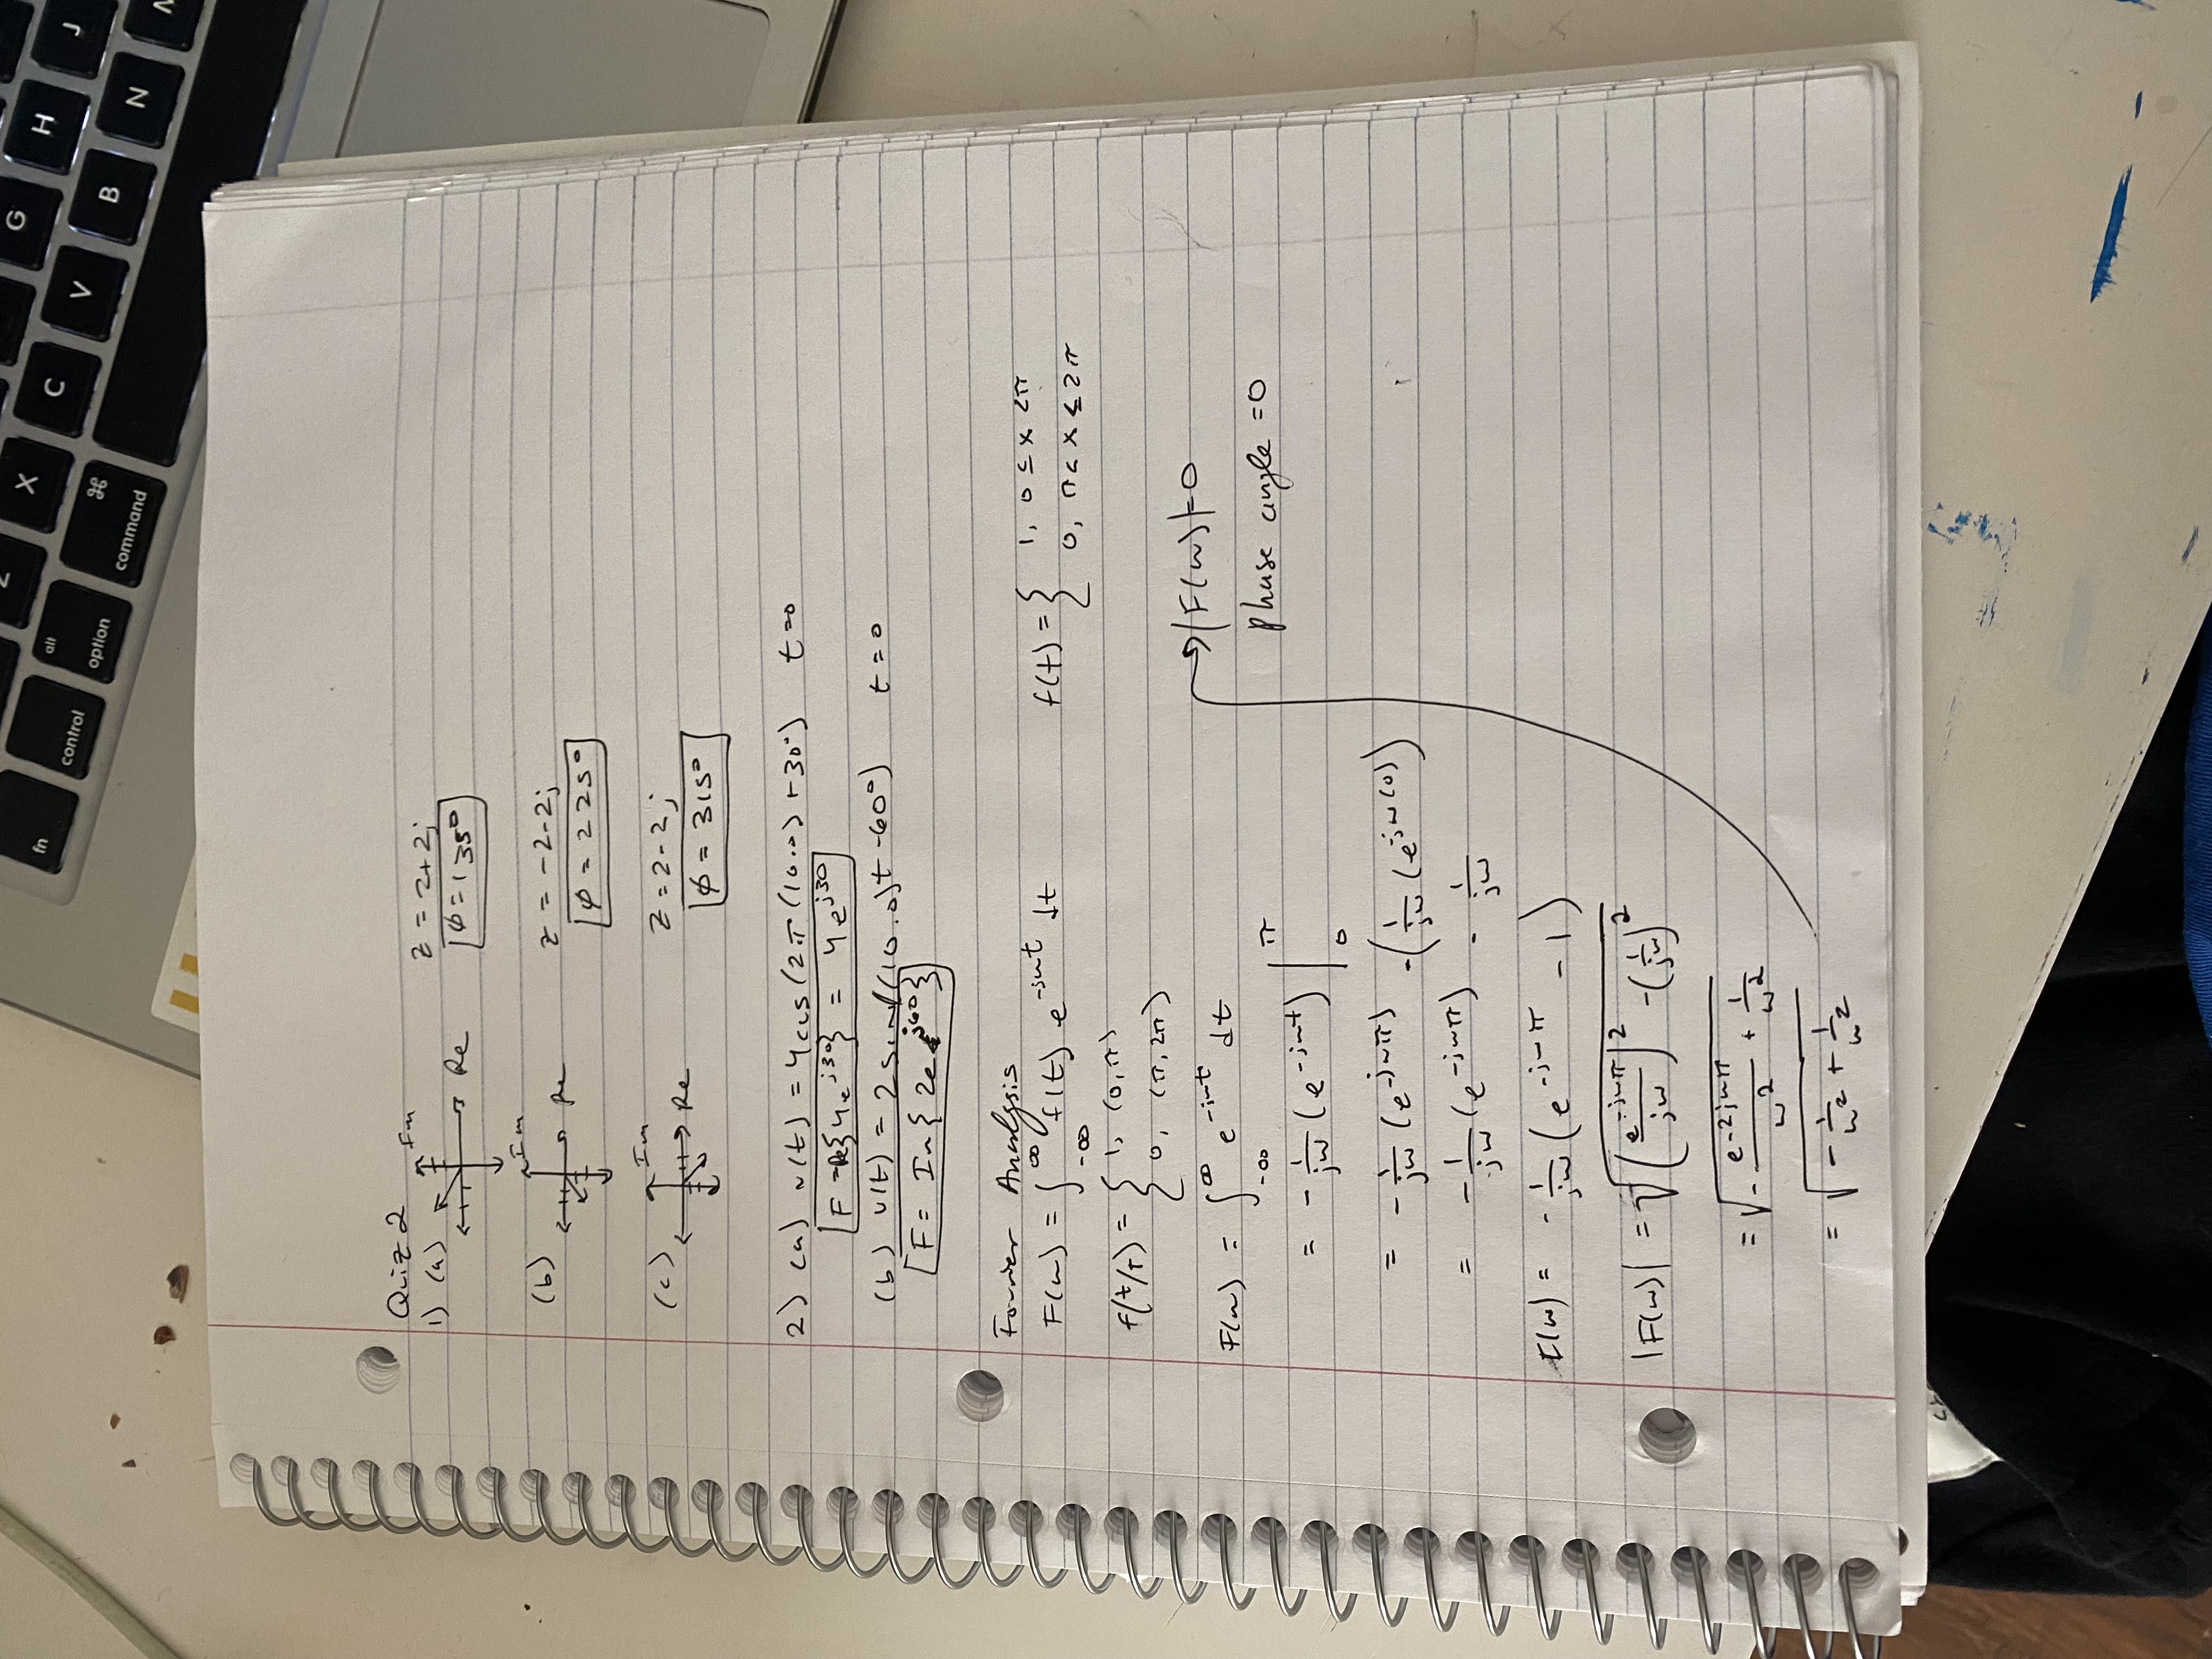 fn
control
alt
option
⌘
command
Z
X
C
V
B
G
H
N
J
Quiz 2
1) (a) Im Re z = 2+2j
φ = 135°
(b) Im Re z = -2-2j
φ = 225°
(c) Im Re Z = 2-2j
φ = 315°
2) (a) v(t) = 4cos(2π(10.0)+30°) t=0
F = Re{4e^j30} = 4e^j30
(b) v(t) = 2sin((10.0)t-60°) t=0
F = Im{2e^j60}
Fourier Analysis
F(w) = ∫_-∞^∞ f(t) e^-jwt dt f(t) = { 1, 0 ≤ x < π
0, π < x ≤ 2π
f(t/T) = { 1, (0,π)
0, (π,2π)
F(w) = ∫_-∞^∞ e^-jwt dt
= -1/jw (e^-jwt) |_0^π
= -1/jw (e^-jwπ) -(1/jw (e^-jw(0))
= -1/jw (e^-jwπ) - 1/jw
F(w) = -1/jw (e^-jwπ - 1)
|F(w)| = √(e^-jwπ/jw)^2 -(1/jw)^2
= √-e-2jwπ/w^2 + 1/w^2
= √-1/w^2 + 1/w^2
→ |F(w)|=0
Phase angle =0